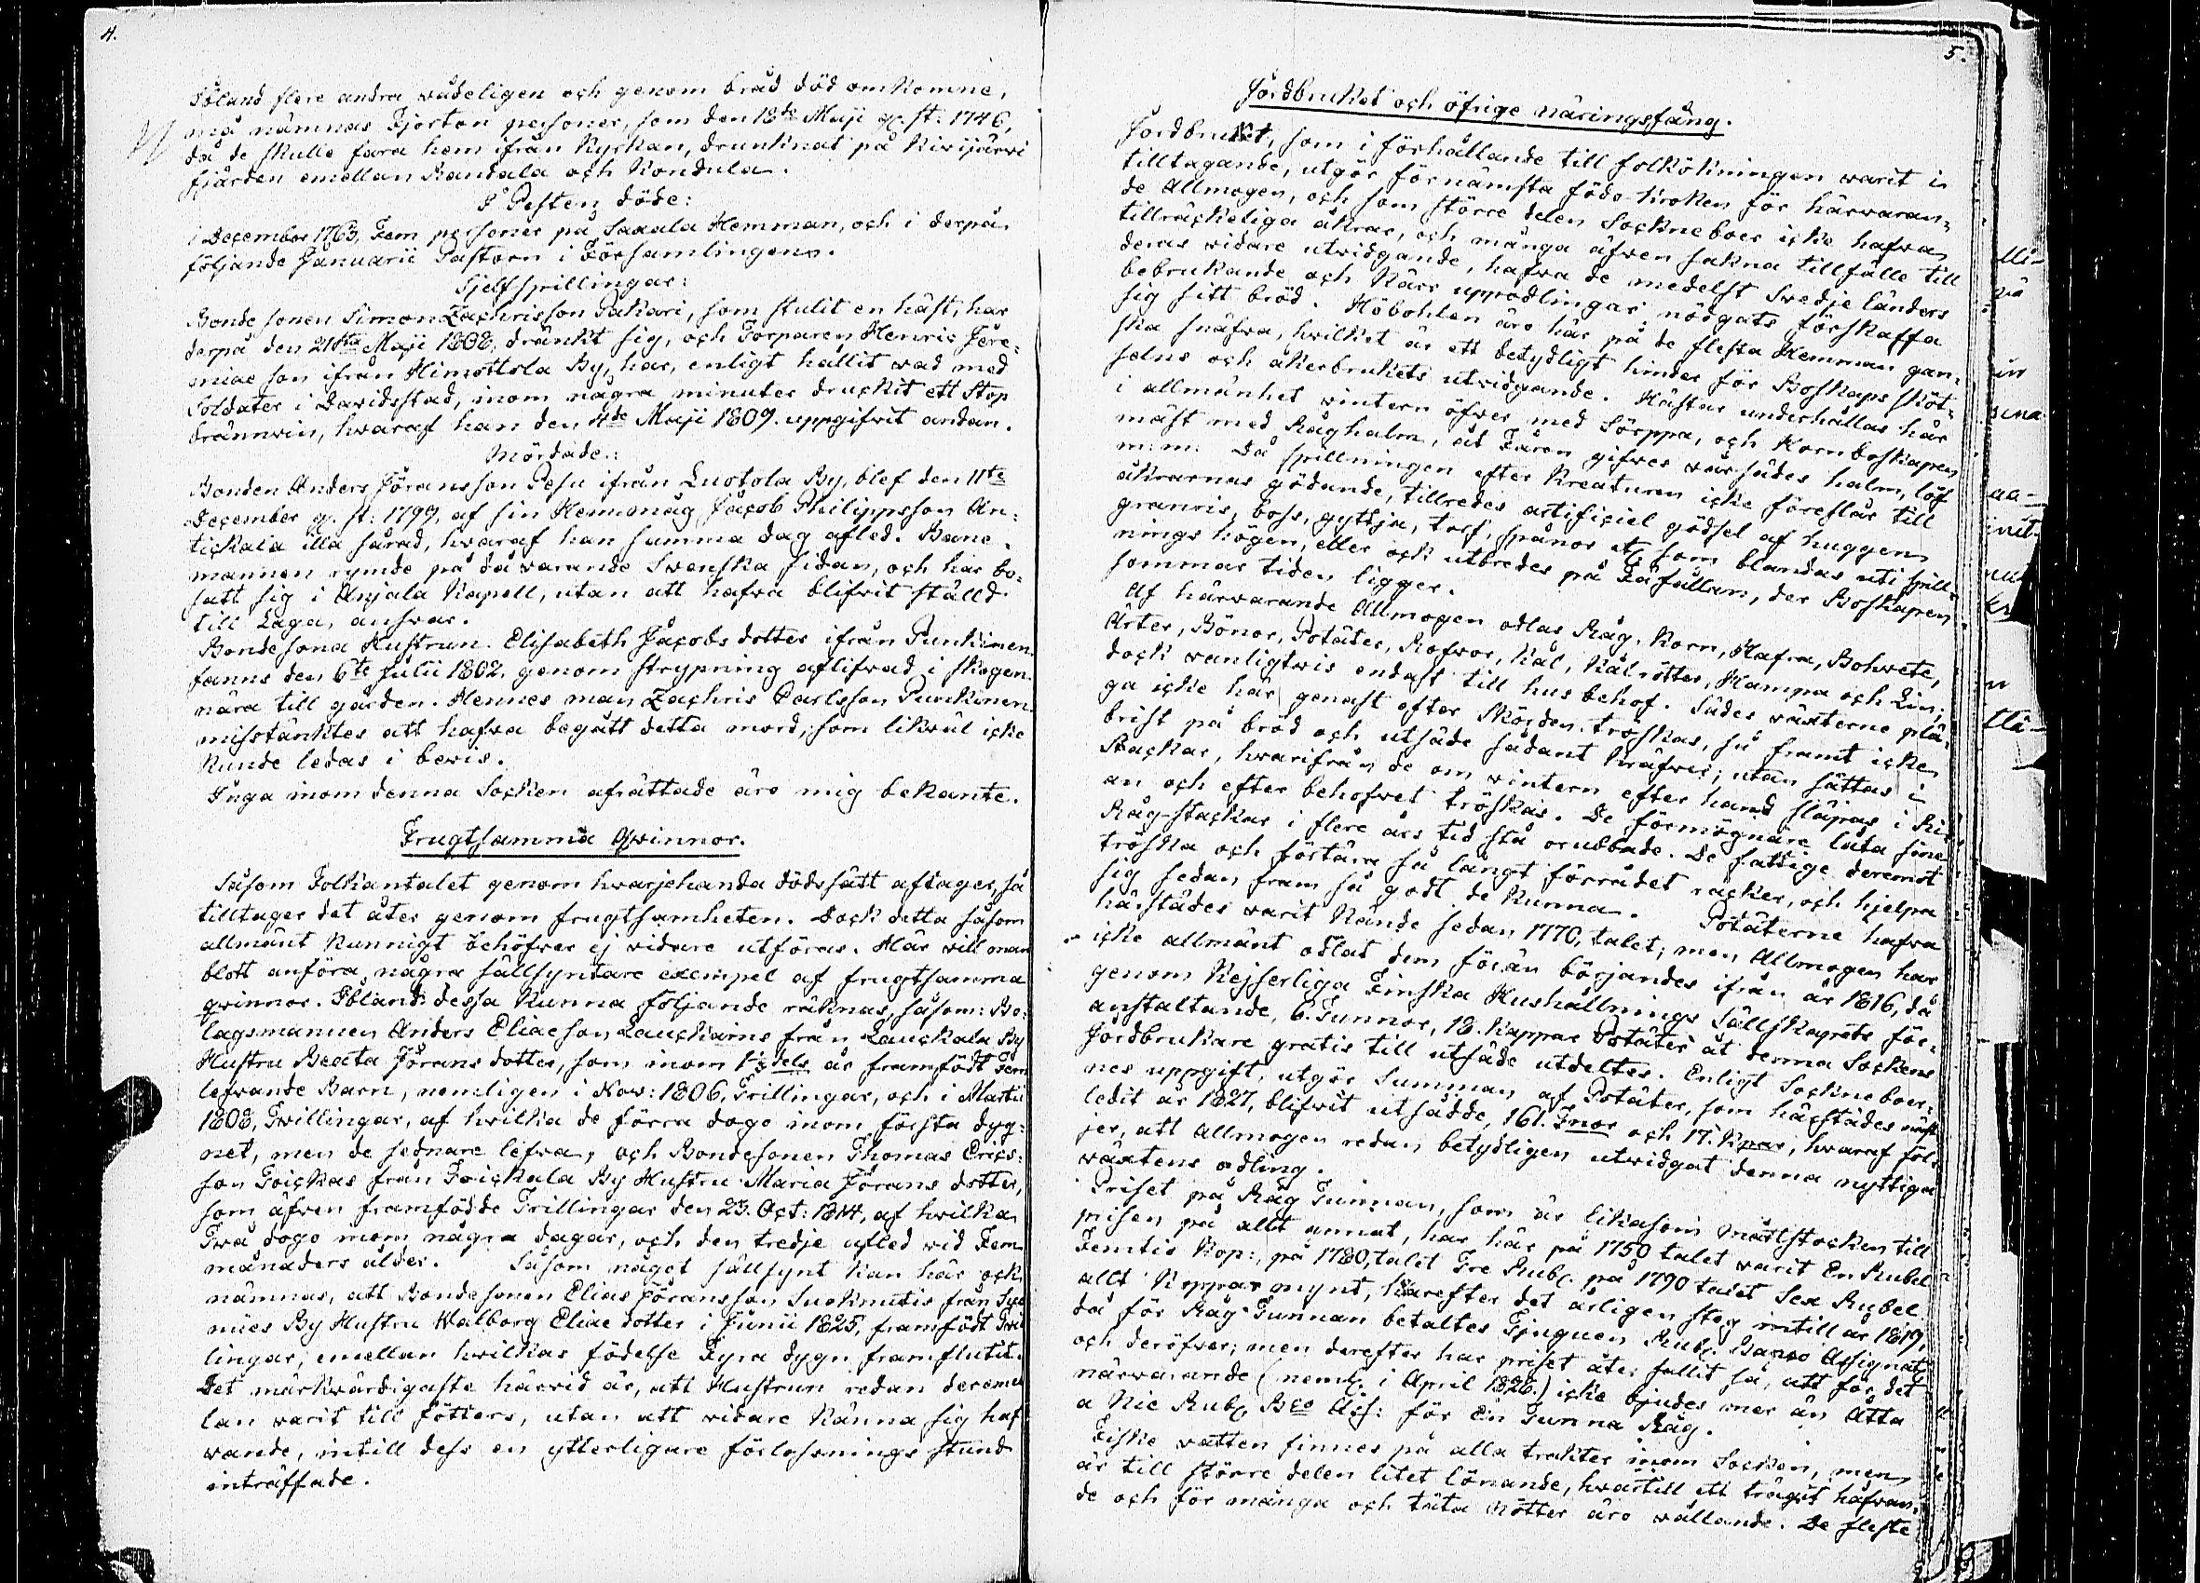 4.
Ibland flere andra wådeligen och genom bråd död omkomne,
må nämnas Fjorton personer, som den 18de Maji g. st: 1746,
då de skulle fara hem ifrån Kyrkan, drunknat på Kivijärvi
fjärden emellan Randala och Kondula.
I Pesten döde:
i December 1763, Fem personer på Saxala Hemman, och i derpå
följande Januarii Pastorn i Församlingen.
Sjelfspillingar:
Bonde sonen Simon Zachrisson Pakari, som stulit en häst, har
derpå den 21sta Maji 1808, dränkt sig, och Torparen Henric Jere-
miae son ifrån Himottola By, har, enligt hållit wad med
Soldater i Davidsstad, inom några minuter druckit ett Stop
brännwin, hwaraf han den 4de Maji 1809. uppgifvit andan.
Mördade:
Bonden Anders Jöransson Pesu ifrån Luotola By, blef den 11te
December g. st: 1799, af sin Hemmåg Jacob Philippsson An-
tickala illa sårad, hwaraf han samma dag afled. Bane-
mannen rymde på då warande Swenska sidan, och har bo-
satt sig i Anjala Kapell, utan att hafva blifvit ställd
till Laga answar.
Bondesona Hustrun Elisabeth Jacobs dotter ifrån Punkinen
fanns den 6te Julii 1802, genom strypning aflifvad i skogen
nära till gården. Hennes man Zachris Carlsson Punkinen
misstänktes att hafva begått detta mord, som likwäl icke
kunde ledas i bevis.
Inga inom denna Socken afrättade äro mig bekante.
Frugtsamma Qwinnor.
Såsom Folkantalet genom hwarjehanda dödssätt aftager, så
tilltager det åter genom frugtsamheten. Dock detta såsom
allmänt kunnigt behöfver ej vidare utföras. Här will man
blott anföra, några sällsyntare exempel af frugtsamma
qwinnor. Ibland dessa kunna följande räknas, såsom: Bo-
lagsmannen Anders Eliae son Lauckains från Lauckala By
Hustru Beata Jörans dotter, som inom 1½ dels år framfödt Fem
lefvande Barn, nemligen i Nov: 1806, Trillingar, och i Martii
1808, Twillingar, af hwilka de förra dogo inom första dyg-
net, men de sednare lefva, och Bondesonen Thomas Erics-
son Toickas från Toickala By Hustru Maria Jörans dotter,
som äfven framfödde Trillingar den 23. Oct: 1814, af hwilka
Twå dogo inom några dagar, och den tredje afled wid Fem
månaders ålder. Såsom något sällsynt kan här ock
nämnas, att Bondesonen Elias Jöransson Suokmutis från
By Hustru Walborg Eliae dotter i Junii 1825, framfödt Twil
lingar; emellan hwilkas födelse Fyra dygn framflutit.
Det märkwärdigaste härwid är, att Hustrun redan deremel
lan warit till fötters, utan att widare känna sig haf
wande, intill dess en ytterligare förlossnings stund
inträffade.
5.
Jordbruket och öfrige näringsfång.
Jordbruket, som i förhållande till folkökningen warit i
tilltagande, utgör förnämsta födo-kroken för härwaran-
de Allmogen, och som större delen Sockneboer icke hafva
tillräckeliga åkrar, och många äfven sakna tillfälle till
deras vidare utvidgande, hafva de medelst Swedje länders
bebrukande och Kärr uppodlingar nödgats förskaffa
sig sitt bröd. Höbohlen äro här på de flesta Hemman gan-
ska snäfva, hwilket är ett betydligt hinder för Boskaps sköt-
selns och åkerbrukets utvidgande. Hästar underhållas här
i allmänhet wintern öfver med Sörppa, och Kornboskapen
mäst med Råghalm, åt Fåren gifves wår sädes halm, löf
m: m: Då spillningen efter Kreaturen icke föreslår till
åkrarnas gödande, tillredes artificiel gödsel af huggen
granris, boss, gyttja, torf, spånor etc som blandas uti spill-
nings högen, eller ock utbredes på Fäfållan, der Boskapen
sommar tiden ligger.
Af härwarande Allmogen odlas Råg, Korn, Hafra, Bohvete,
Ärter, Bönor, Potäter, Rofvor, Kål, Kålrötter, Hampa och Lin,
dock vanligtvis endast till hus behof. Sädes växterne plä-
ga icke här genast efter skörden tröskas, så framt icke
brist på bröd och utsäde sådant kräfver; utan sättas i
Stackar, hwarifrån de om wintern efter hand släpas i Ri-
an och efter behofvet tröskas. De förmögnare låta sine
Råg-stackar i flere års tid stå orubbade. De fattige deremot
tröska och förtära så långt förrådet räcker, och hjelpa
sig sedan fram så godt de kunna. Potäterne hafva
härstädes warit kände sedan 1770, talet; men Allmogen har
icke allmänt odlat dem förän börjandes ifrån år 1816, då
genom Kejserliga Finska Hushållnings Sällskapets för-
anstaltande, 6. Tunnor, 18. Kappar Potäter åt denna Sockens
Jordbrukare gratis till utsäde utdeltes. Enligt Socknebor-
nes uppgift, utgör Summan af Potäter, som härstädes näst-
ledit år 1827, blifvit utsådde, 161. Tnor och 17. Kpar, hwaraf föl-
jer, att Allmogen redan betydligen utvidgat denna nyttiga
wäxtens odling.
Priset på Råg Tunnan, som är likasom måttstocken till
prisen på allt annat, har här på 1750 talet warit En Rubel
Femtio Kop:, på 1780, talet Tre Rubl. på 1790 talet Sex Rubel
allt Kopparmynt, hwarefter det årligen steg intill år 1819,
då för Råg Tunnan betaltes Tjuguen Rubl: Banco Assignat
och deröfver; men derefter har priset åter fallit så, att för det
närwarande (neml. i April 1828.) icke bjudes mer än Åtta
a Nie Rubl Bco Ass: för En Tunna Råg.
Fiske watten finnes på alla trakter inom Socken, men
är till större delen litet lönande, hwartill ett trägit håfvan-
de och för många och täta Nötter äro wållande. De fleste